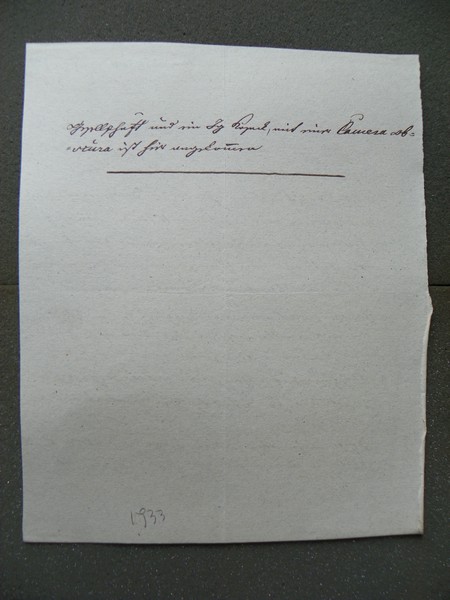 Gesellschaft und ein mit einer Camera ob=
scura ist hier angekommen
1933